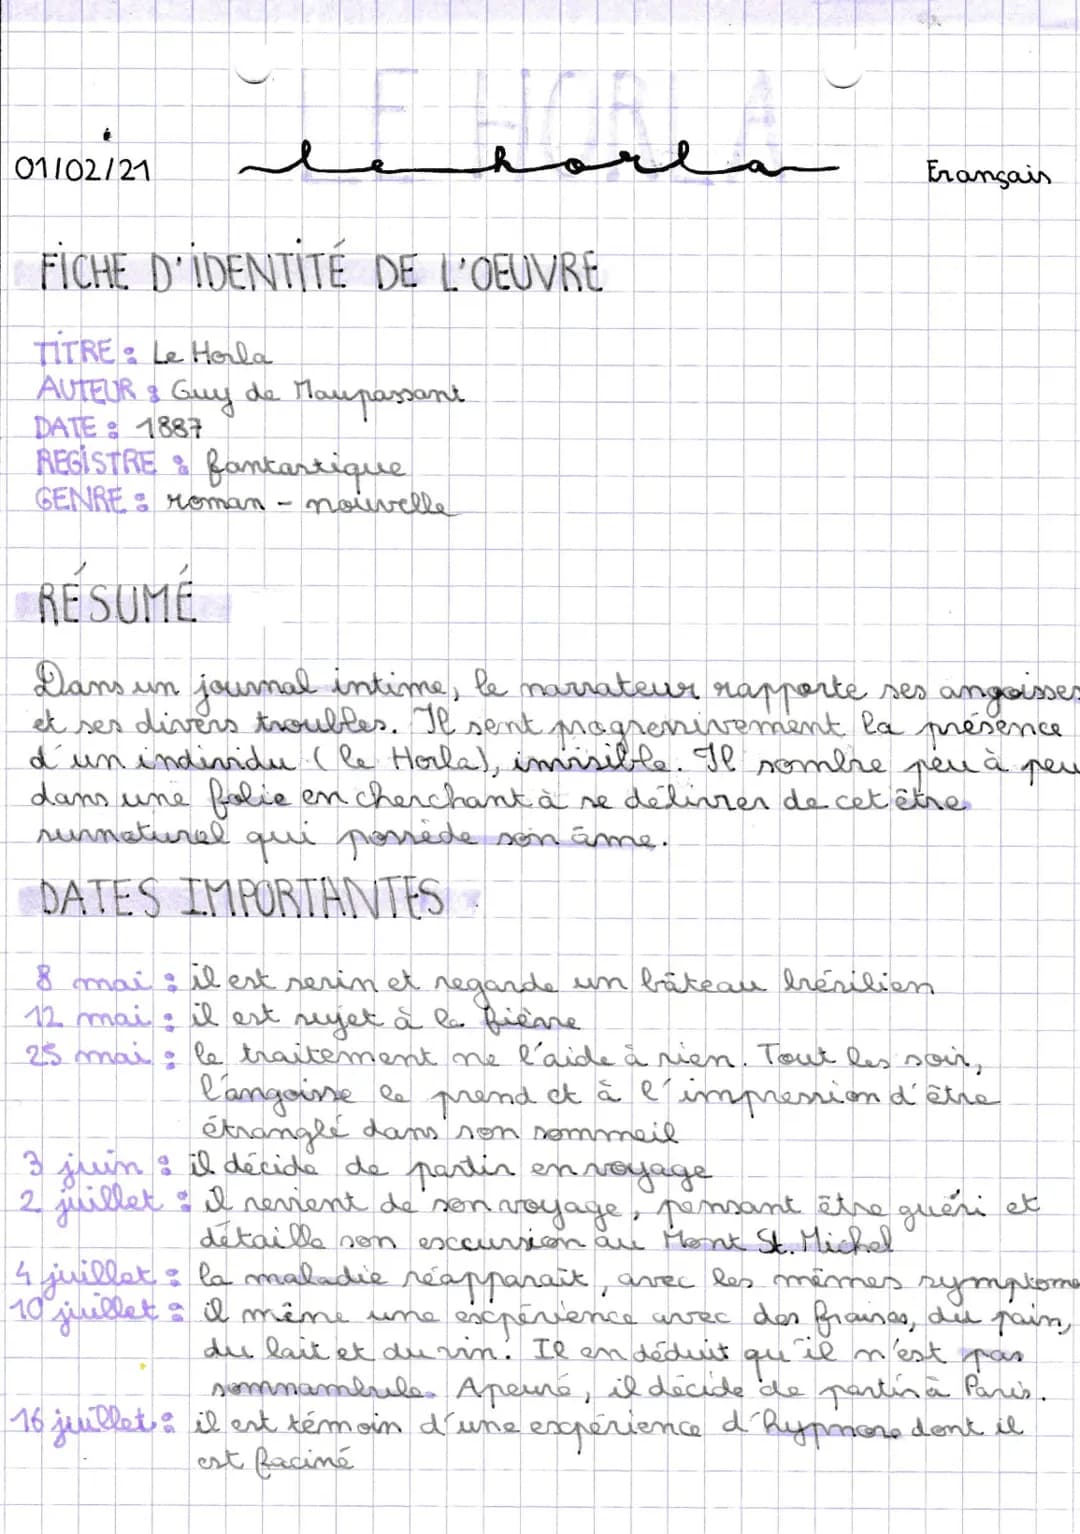 LE HORLA
01/02/21 le horla Français
FICHE D'IDENTITÉ DE L'OEUVRE
TITRE : Le Horla
AUTEUR : Guy de Maupassant
DATE : 1887
REGISTRE : fantastique
GENRE : roman - nouvelle
RÉSUMÉ
Dans un journal intime, le narrateur rapporte ses angoisses
et ses divers troubles. Il sent progressivement la présence
d'un individu (le Horla), invisible. Il sombre peu à peu
dans une folie en cherchant à se délivrer de cet être
surnaturel qui possède son âme.
DATES IMPORTANTES
8 mai : il est serin et regarde un bâteau brésilien
12 mai : il est sujet à la fièvre
25 mai : le traitement ne l'aide à rien. Tout les soir,
l'angoisse le prend et à l'impression d'être
étranglé dans son sommeil
3 juin : il décide de partir en voyage
2 juillet : il revient de son voyage, pensant être guéri et
détaille son escursion au Mont St. Michel
4 juillet : la maladie réapparaît, avec les mêmes symptome
10 juillet : il mème une expérience avec des fraises, du pain,
du lait et du vin. Il en déduit qu'il n'est pas
somnambule. Apeuré, il décide de partir à Paris.
16 juillet : il est témoin d'une expérience d'hypnose dont il
est faciné